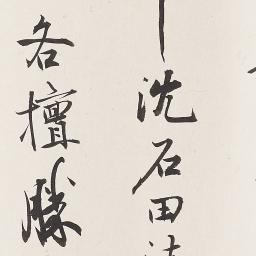 沈石田法
各擅勝